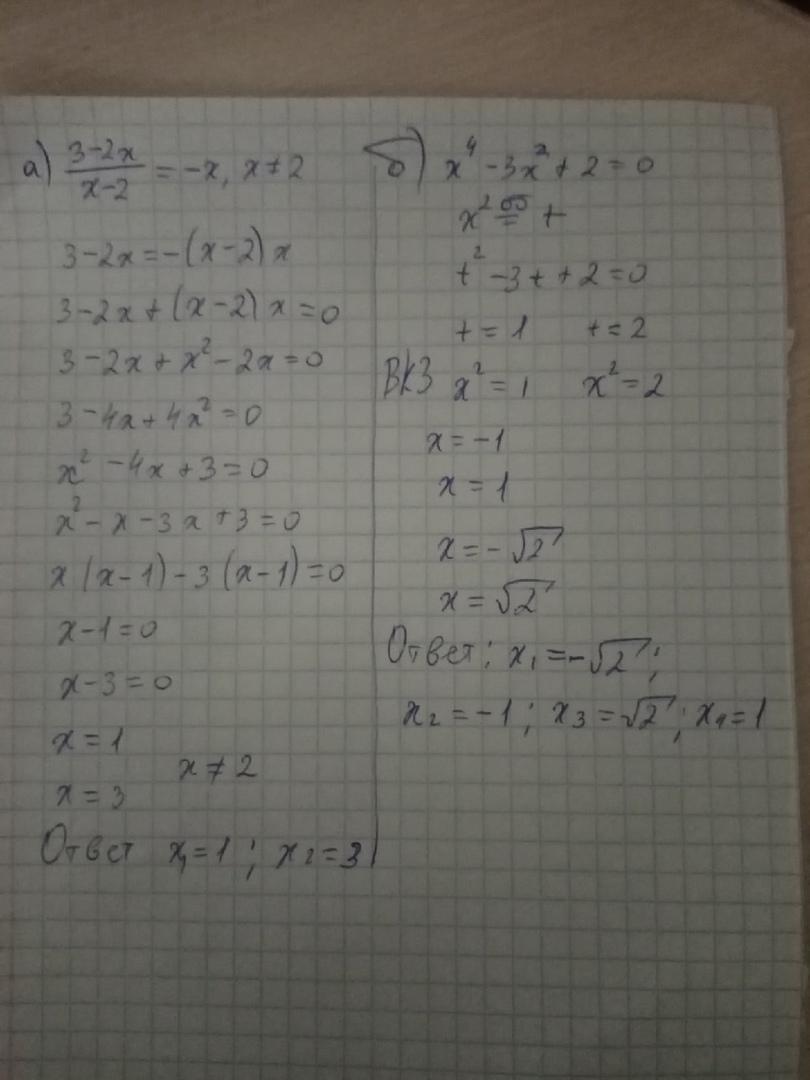 а) (3-2x)/(x-2) = -x, x≠2
3-2x=-(x-2)x
3-2x+(x-2)x=0
3-2x+x²-2x=0
3-4x+4x²=0
x²-4x+3=0
x²-x-3x+3=0
x(x-1)-3(x-1)=0
x-1=0
x-3=0
x=1
x≠2
x=3
Ответ x₁=1; x₂=3
б) x⁴-3x²+2=0
x² = t
t²-3t+2=0
t=1 t=2
ВКЗ x²=1 x²=2
x=-1
x=1
x=-√2
x=√2
Ответ: x₁=-√2;
x₂=-1; x₃=√2; x₄=1